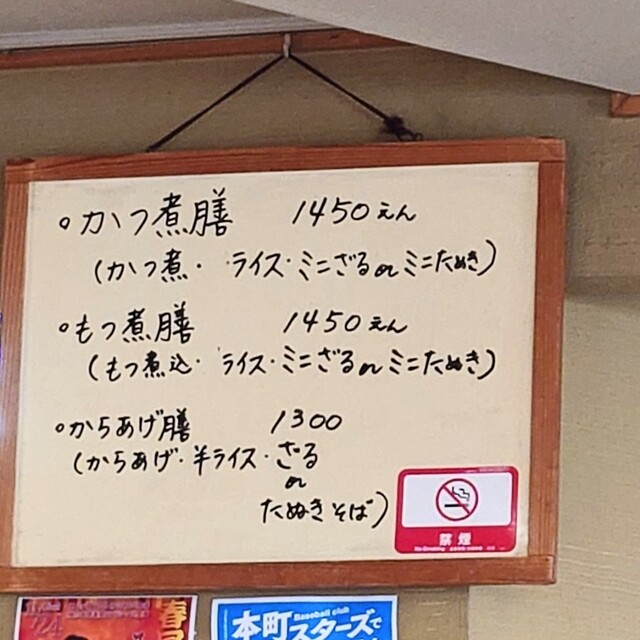 ○かつ煮膳 1450えん
(かつ煮・ライス・ミニざるorミニたぬき)
○もつ煮膳 1450えん
(もつ煮込・ライス・ミニざるorミニたぬき)
○からあげ膳 1300
(からあげ・半ライス・ざる
or
たぬきそば)
禁煙
No Smoking
Baseball club
本町スターズで